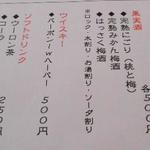 果実酒
各500
◆完熟にごり(桃と梅)
◆完熟みかん梅酒
◆はっさく梅酒
※ロック・水割り・お湯割り・ソーダ割り
ウイスキー
◆バーボン・wハーパー
500円
ソフトドリンク
◆ウーロン茶
250円
◆コーラ